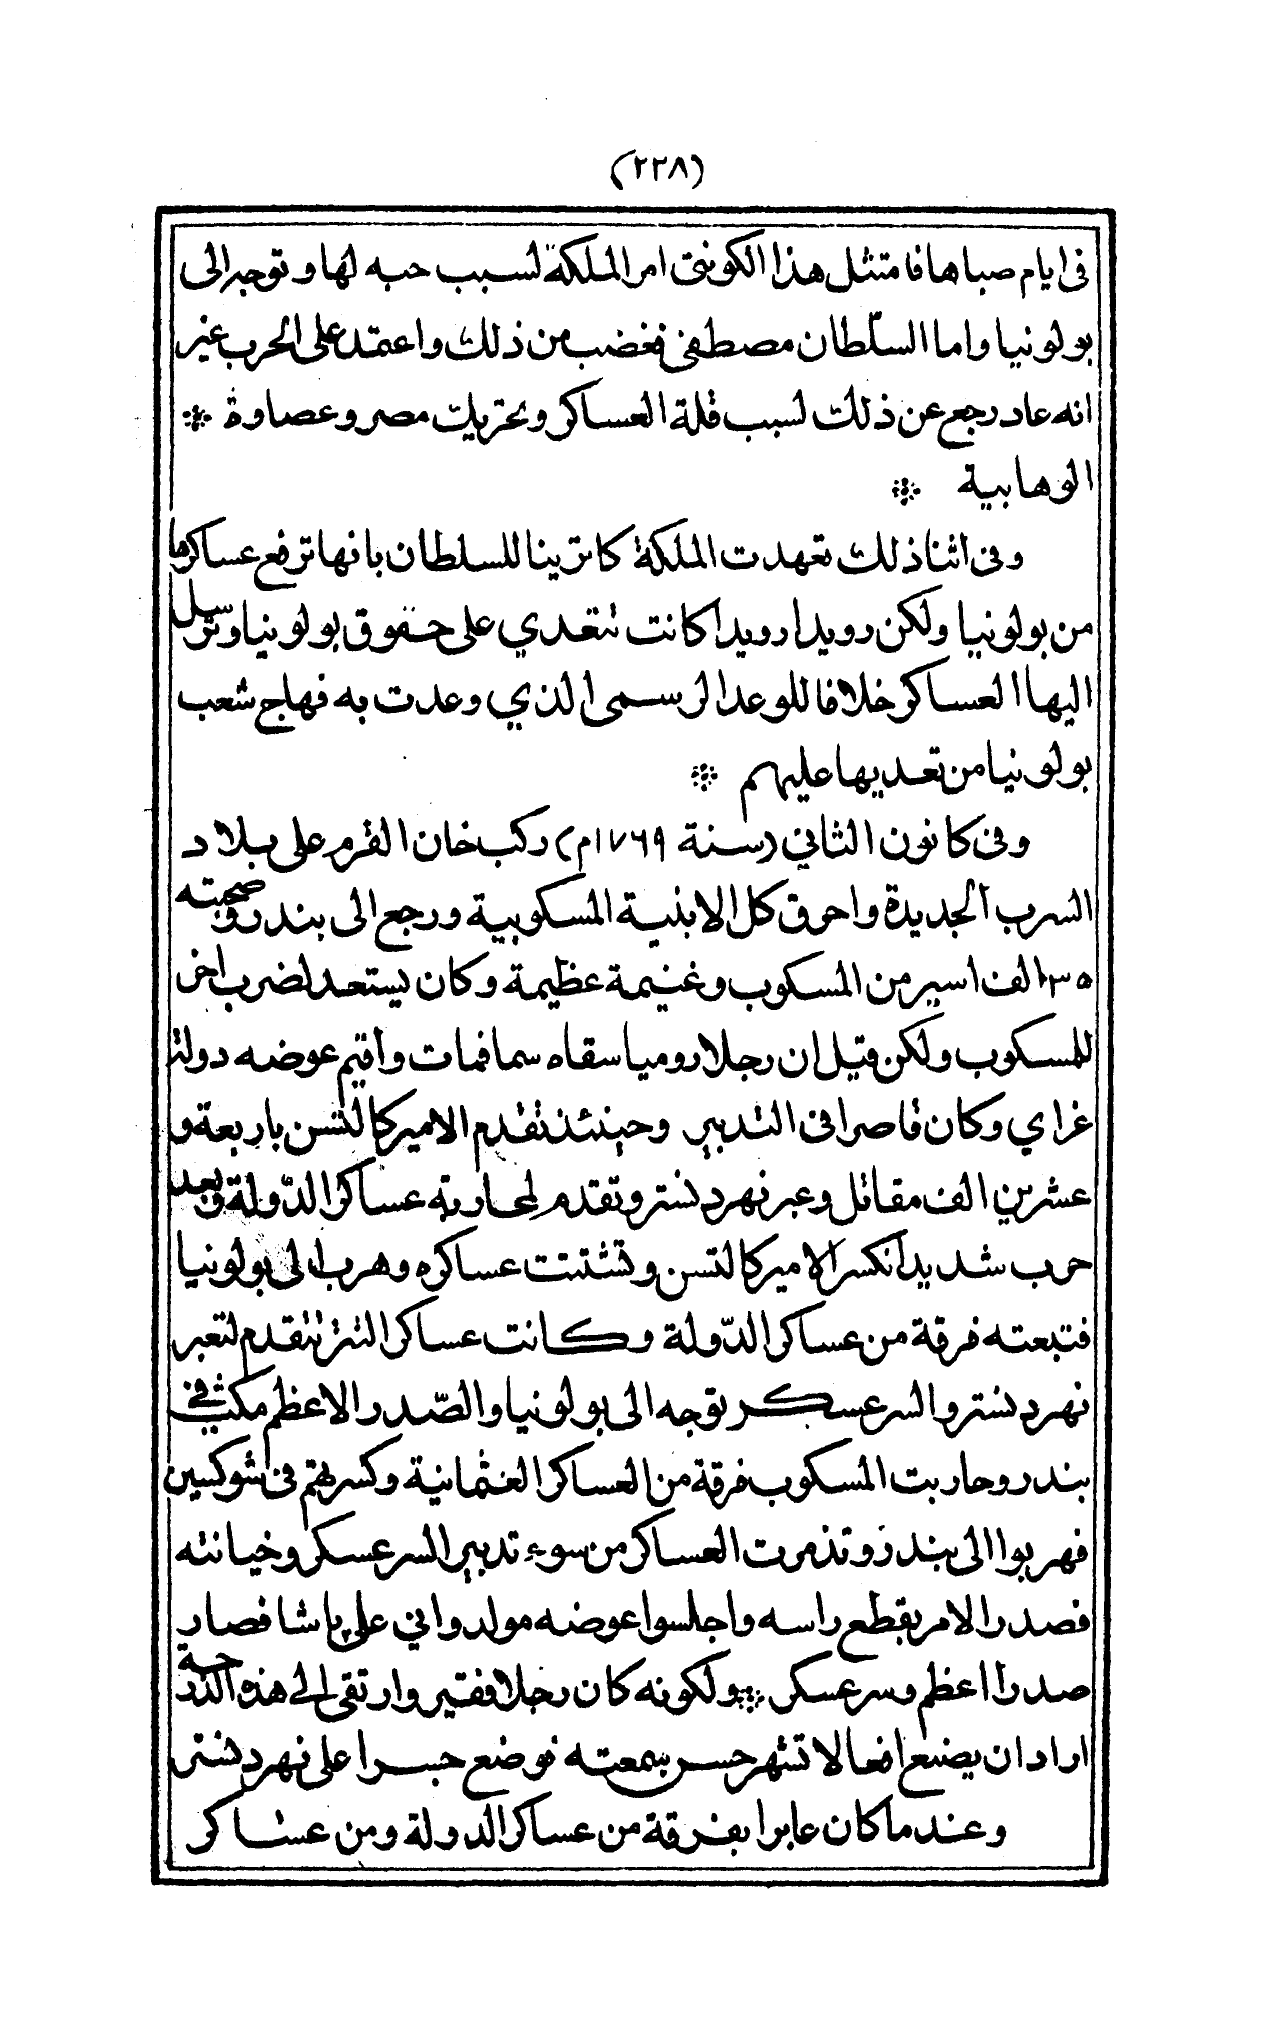 (٢٣٨)
فى ايام صباها فامتثل هذا الكونتى امر الملكة لسبب حبه لها وتوجه الى
بولونيا واما السلّطان مصطفى فغضب من ذلك واعتمد على الحرب غير
انه عاد رجع عن ذلك لسبب قلة العساكر وتحريك مصر وعصاوة ※
الوهابية ※
وفى اثنا ذلك تعهدت الملكة كاترينا للسلطان بانها ترفع عساكرها
من بولونيا ولكن رويدا رويدا كانت تتعدي على حقوق بولونيا وترسل
اليها العساكر خلافا للوعد الرسمى الذي وعدت به فهاج شعب
بولونيا من تعديها عليهم ※
وفى كانون الثاني (سنة ١٧٦٩م) ركب خان القرم على بلاد
السرب الجديدة واحرق كل الابنية المسكوبية ورجع الى بندر وصحبته
١٣٥ الف اسير من المسكوب وغنيمة عظيمة وكان يستعد لضرب اخر
للمسكوب ولكن قيل ان رجلا روميا سقاه سما فمات واقيم عوضه دولة
غراي وكان قاصرا فى التدبير وحينئذ تقدم الامير كالتسن باربعة و
عشرين الف مقاتل وعبر نهر دنستر وتقدم لمحاربة عساكر الدّولة وبعد
حرب شديد انكسر الامير كالتسن وتشتتت عساكره وهرب الى بولونيا
فتبعته فرقة من عساكر الدّولة وكانت عساكر التتر تتقدم لتعبر
نهر دنستر والسرعسكر توجه الى بولونيا والصّدر الاعظم مكث في
بندر وحاربت المسكوب فرقة من العساكر العثمانية وكسرتهم فى شوكسين
فهربوا الى بندر وتذمرت العساكر من سوء تدبير السرعسكر وخيانته
فصدر الامر بقطع راسه واجلسوا عوضه مولدواني على پاشا فصار
صدرا اعظم وسرعسكر ※ ولكونه كان رجلا فقير وارتقى الى هذه الدرجة
اراد ان يصنع افعالا تشهر حسن سمعته فوضع جسرا على نهر دنستر
وعندما كان عابرا بفرقة من عساكر الدولة ومن عساكر